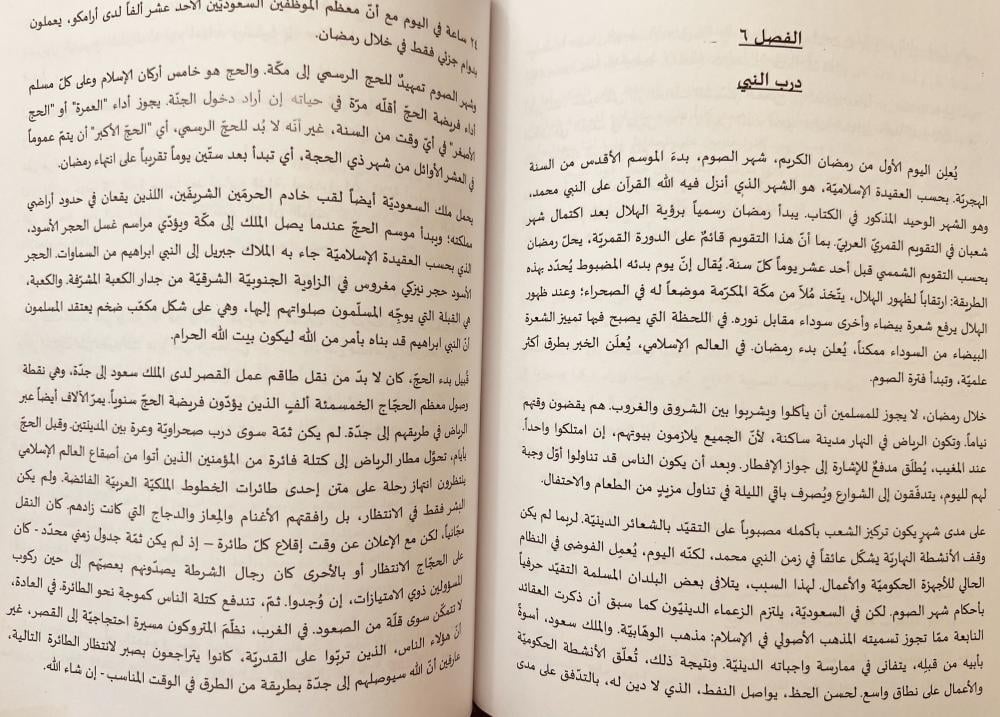 الفصل ٦
درب النبي
يُعلن اليوم الأول من رمضان الكريم، شهر الصوم، بدءَ الموسم الأقدس من السنة
الهجريّة. بحسب العقيدة الإسلاميّة، هو الشهر الذي أنزل فيه الله القرآن على النبي محمد،
وهو الشهر الوحيد المذكور في الكتاب. يبدأ رمضان رسمياً برؤية الهلال بعد اكتمال شهر
شعبان في التقويم القمريّ العربيّ. بما أنّ هذا التقويم قائمٌ على الدورة القمريّة، يحلّ رمضان
بحسب التقويم الشمسي قبل أحد عشر يوماً كلّ سنة. يُقال إنّ يوم بدئه المضبوط يُحدّد بهذه
الطريقة: ارتقاباً لظهور الهلال، يتّخذ مُلاّ من مكّة المكرّمة موضعاً له في الصحراء؛ وعند ظهور
الهلال يرفع شعرة بيضاء وأخرى سوداء مقابل نوره. في اللحظة التي يصبح فيها تمييز الشعرة
البيضاء من السوداء ممكناً، يُعلن بدء رمضان. في العالم الإسلامي، يُعلَن الخبر بطرق أكثر
علميّة، وتبدأ فترة الصوم.
خلال رمضان، لا يجوز للمسلمين أن يأكلوا ويشربوا بين الشروق والغروب. هم يقضون وقتهم
نياماً. وتكون الرياض في النهار مدينة ساكنة، لأنّ الجميع يلازمون بيوتهم، إن امتلكوا واحداً.
عند المغيب، يُطلَق مدفعٌ للإشارة إلى جواز الإفطار. وبعد أن يكون الناس قد تناولوا أوّل وجبة
لهم لليوم، يتدفّقون إلى الشوارع ويُصرف باقي الليلة في تناول مزيدٍ من الطعام والاحتفال.
على مدى شهرٍ يكون تركيز الشعب بأكمله مصبوباً على التقيّد بالشعائر الدينيّة. لربما لم يكن
وقف الأنشطة النهاريّة يشكّل عائقاً في زمن النبي محمد، لكنّه اليوم، يُعمِل الفوضى في النظام
الحالي للأجهزة الحكوميّة والأعمال. لهذا السبب، يتلافى بعض البلدان المسلمة التقيّد حرفياً
بأحكام شهر الصوم. لكن في السعوديّة، يلتزم الزعماء الدينيّون كما سبق أن ذكرت العقائد
النابعة ممّا تجوز تسميته المذهب الأصولي في الإسلام: مذهب الوهّابيّة. والملك سعود، أسوةً
بأبيه من قبلِه، يتفانى في ممارسة واجباته الدينيّة. ونتيجة ذلك، تُعلّق الأنشطة الحكوميّة
والأعمال على نطاق واسع. لحسن الحظ، يواصل النفط، الذي لا دين له، بالتدّفق على مدى
٢٤ ساعة في اليوم مع أنّ معظم الموظفين السعوديّين الأحد عشر ألفاً لدى أرامكو، يعملون
بدوام جزئي فقط في خلال رمضان.
وشهر الصوم تمهيدٌ للحج الرسمي إلى مكّة. والحج هو خامس أركان الإسلام وعلى كلّ مسلم
أداء فريضة الحجّ أقلّه مرّة في حياته إن أراد دخول الجنّة. يجوز أداء "العمرة" أو "الحج
الأصغر" في أيّ وقت من السنة، غير أنّه لا بُد للحجّ الرسمي، أي "الحجّ الأكبر" أن يتمّ عموماً
في العشر الأوائل من شهر ذي الحجة، أي تبدأ بعد ستّين يوماً تقريباً على انتهاء رمضان.
يحمل ملك السعوديّة أيضاً لقب خادم الحرمَين الشريفَين، اللذين يقعان في حدود أراضي
مملكته؛ ويبدأ موسم الحجّ عندما يصل الملك إلى مكّة ويؤدّي مراسم غسل الحجر الأسود،
الذي بحسب العقيدة الإسلاميّة جاء به الملاك جبريل إلى النبي ابراهيم من السماوات. الحجر
الأسود حجر نيزكي مغروس في الزاوية الجنوبيّة الشرقيّة من جدار الكعبة المشرّفة. والكعبة،
هي القبلة التي يوجّه المسلّمون صلواتهم إليها، وهي على شكل مكعّب ضخم يعتقد المسلمون
أنّ النبي ابراهيم قد بناه بأمر من الله ليكون بيت الله الحرام.
قُبيل بدء الحجّ، كان لا بدّ من نقل طاقم عمل القصر لدى الملك سعود إلى جدّة، وهي نقطة
وصول معظم الحجّاج الخمسمئة ألفٍ الذين يؤدّون فريضة الحجّ سنوياً. يمرّ الآلاف أيضاً عبر
الرياض في طريقهم إلى جدّة. لم يكن ثمّة سوى درب صحراويّة وعرة بين المدينتين. وقبل الحجّ
بأيام، تحوّل مطار الرياض إلى كتلة فائرة من المؤمنين الذين أتوا من أصقاع العالم الإسلامي
ينتظرون انتهاز رحلة على متن إحدى طائرات الخطوط الملكيّة العربيّة الفائضة. ولم يكن
البشر فقط في الانتظار، بل رافقتهم الأغنام والمِعاز والدجاج التي كانت زادهم. كان النقل
مجّانياً، لكن مع الإعلان عن وقت إقلاع كلّ طائرة – إذ لم يكن ثمّة جدول زمني محدّد - كان
على الحجّاج الانتظار أو بالأحرى كان رجال الشرطة يصدّونهم بعصيّهم إلى حين ركوب
المسؤولين ذوي الامتيازات، إن وُجدوا. ثمّ، تندفع كتلة الناس كموجة نحو الطائرة. في العادة،
لا تتمكّن سوى قلّة من الصعود. في الغرب، نظّمَ المتروكون مسيرة احتجاجيّة إلى القصر، غير
أنّ هؤلاء الناس، الذين تربّوا على القدريّة، كانوا يتراجعون بصبر لانتظار الطائرة التالية،
عارفين أنّ الله سيوصلهم إلى جدّة بطريقة من الطرق في الوقت المناسب - إن شاء الله.